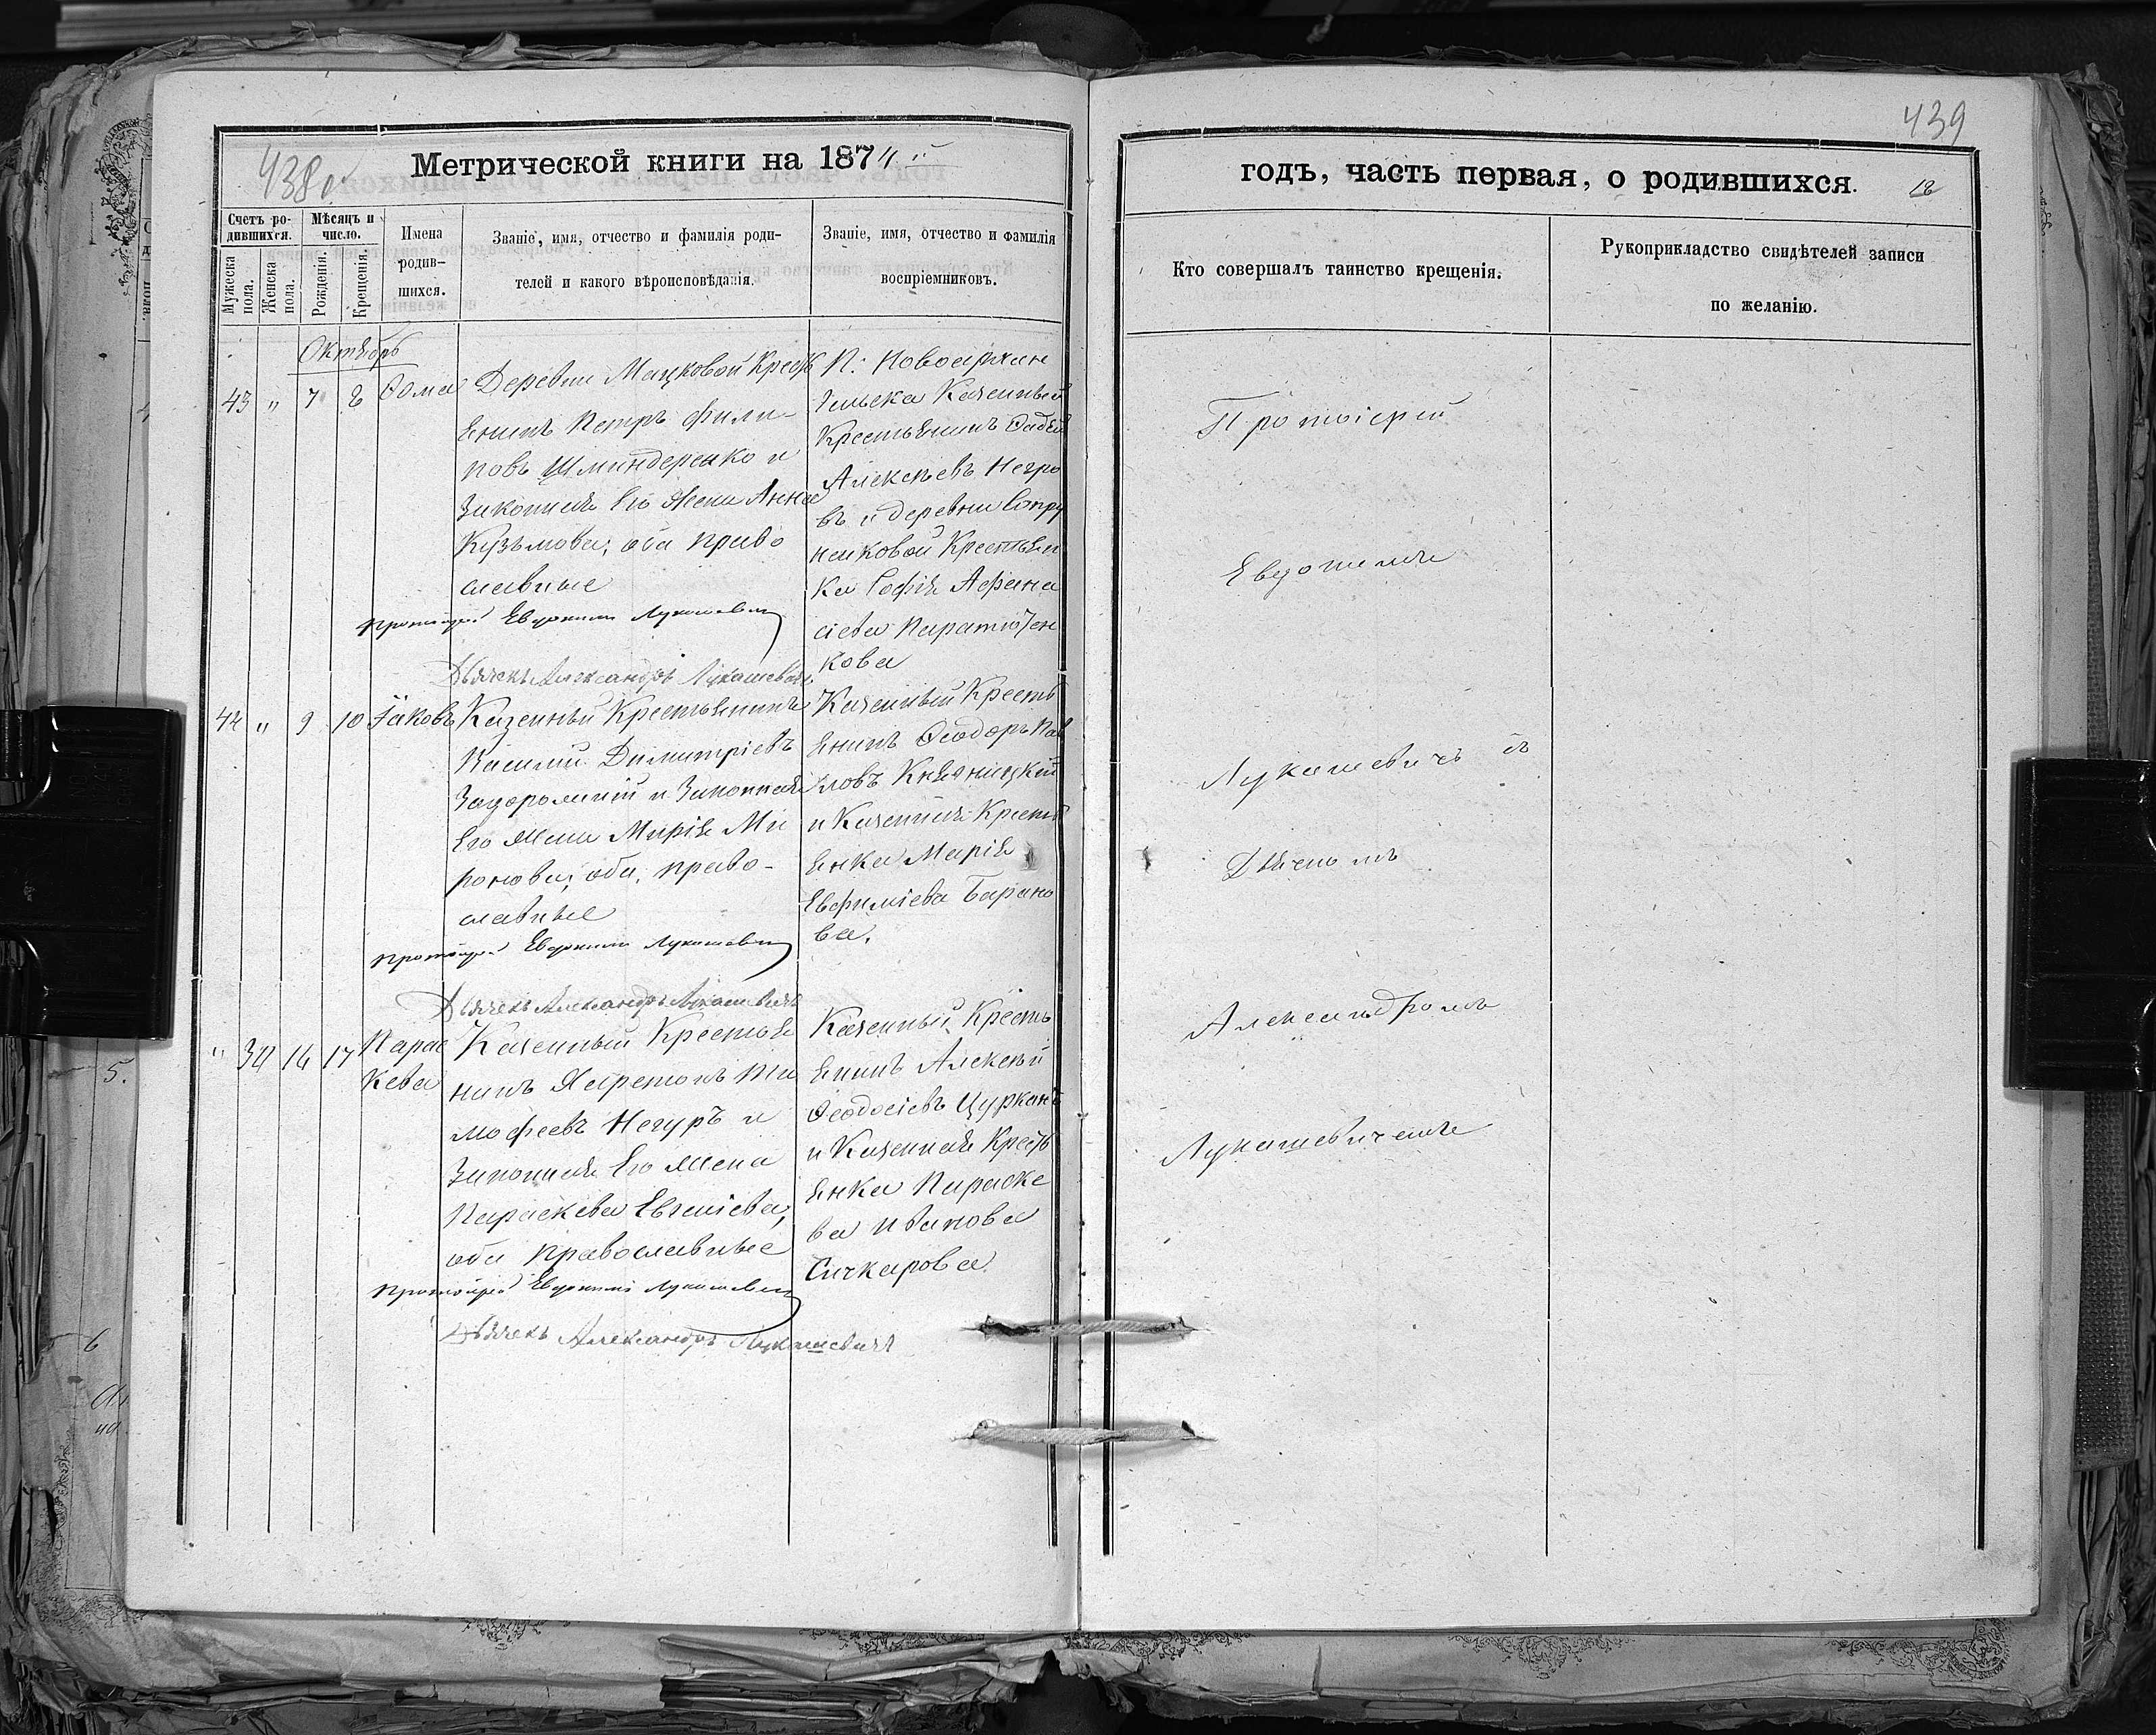 438 об.
Метрической книги на 1874 й
Счетъ родившихся.
Мѣсяцъ и число.
Имена родившихся.
Званіе, имя, отчество и фамилія родителей и какого вѣроисповѣданія.
Званіе, имя, отчество и фамилія воспріемниковъ.
Мужеска пола.
Женска пола.
Рожденія.
Крещенія.
Октябрь
43 " 7 8 Ѳома
Деревни Мацковой Крестъ
янинъ Петръ Фили-
повъ Шминдеренко и
Законная Его Жена Анна
Кузьмова; оба право
славные
Протоіерей Евдокимъ Лукашевичъ
Дьячекъ Александръ Лукашевичъ
П. Новоархан
гельска Казенный
Крестьянинъ Фадей
Алексѣевъ Негро
въ и деревни
Крестьян
ка Софія Афана
сіева
кова
44 " 9 10 Іаковъ
Казенный Крестьянинъ
Василій Димитріевъ
Задорожний и Законная
Его Жена Марія Ми
ронова; оба, право-
славные
Протоіерей Евдокимъ Лукашевичъ
Дьячекъ Александръ Лукашевичъ
Казенный Кресть
янинъ Ѳеодоръ Пав
ловъ Княжицкій
и Казенная Кресть
янка Марія
Евфиміева Барано
ва.
" 34 16 17 Парас
кева
Казенный Крестья
нинъ Харетонъ Ти
мофеевъ Негуръ и
Законная Его Жена
Параскева Евгеніева,
оба православные
Протоіерей Евдокимъ Лукашевичъ
Дьячекъ Александръ Лукашевичъ
Казенный Кресть
янинъ Алексѣй
Ѳеодосіевъ Цуркан
и Казенная Кресть
янка Параске
ва Иванова
Сичкарова
439
годъ, часть первая, о родившихся.
12
Кто совершалъ таинство крещенія.
Рукоприкладство свидѣтелей записи
по желанію.
Протоіерей
Евдокимъ
Лукашевичъ съ
Дьячкомъ
Александромъ
Лукашевичемъ